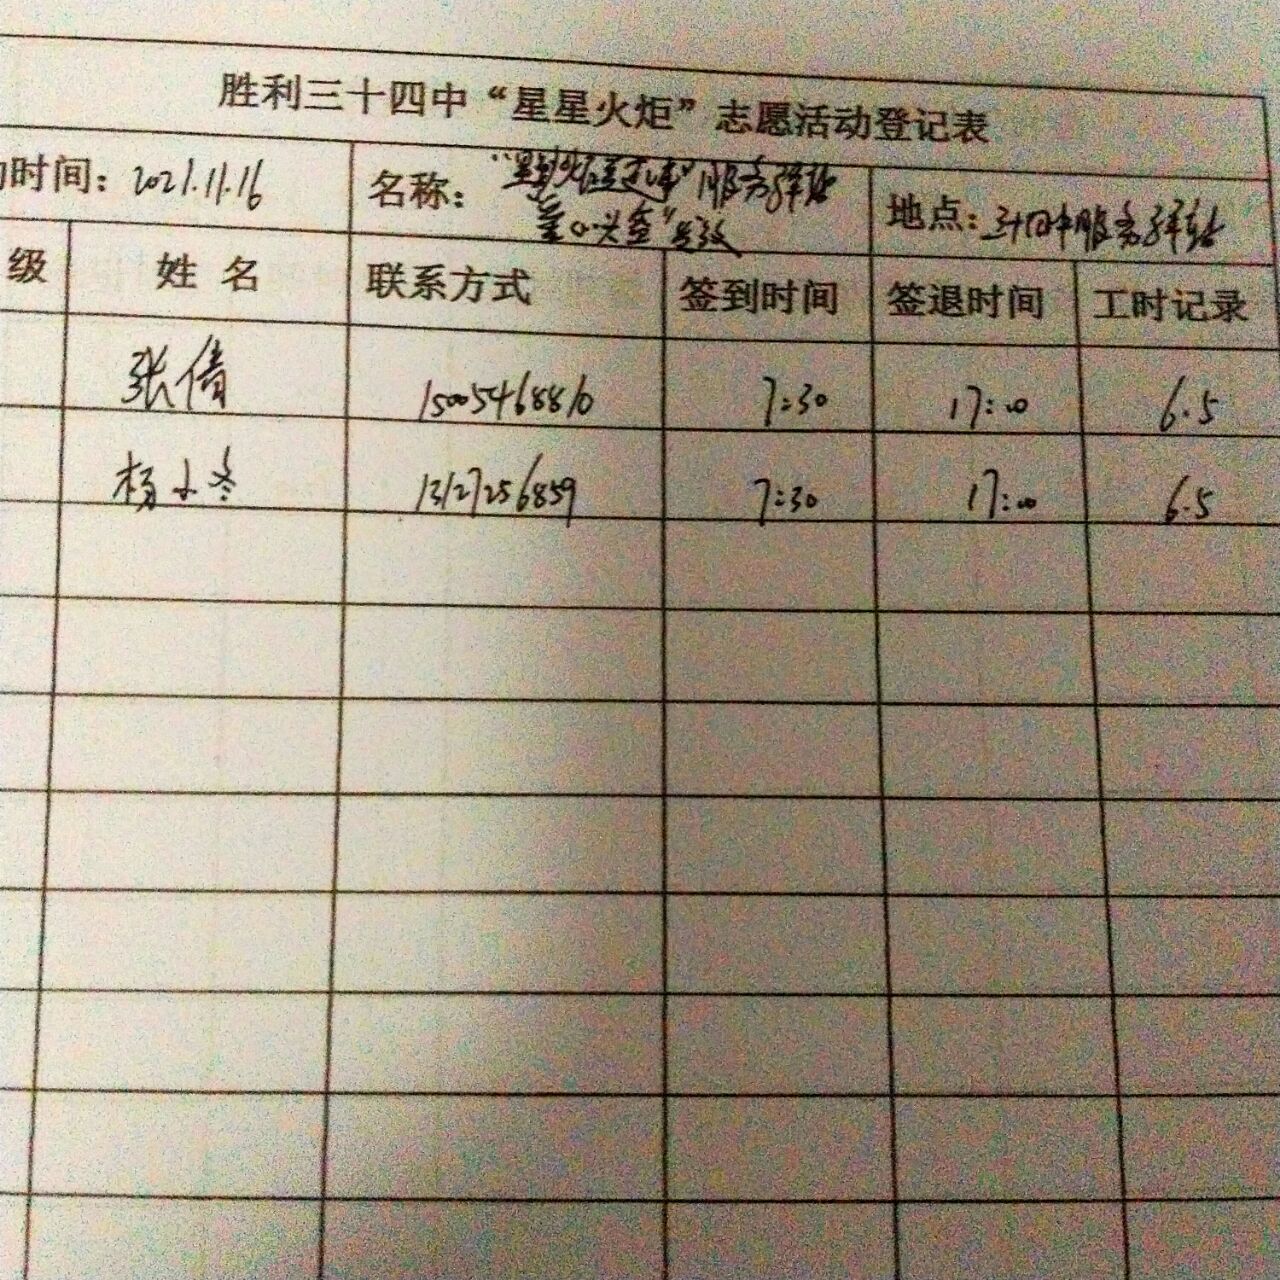 胜利三十四中“星星火炬”志愿活动登记表
时间：2021.11.16 名称： 服务驿站 地点：三十四中服务驿站
级 姓名 联系方式 签到时间 签退时间 工时记录
张倩 15005468810 7:30 17:00 6.5
杨小冬 13127256859 7:30 17:00 6.5